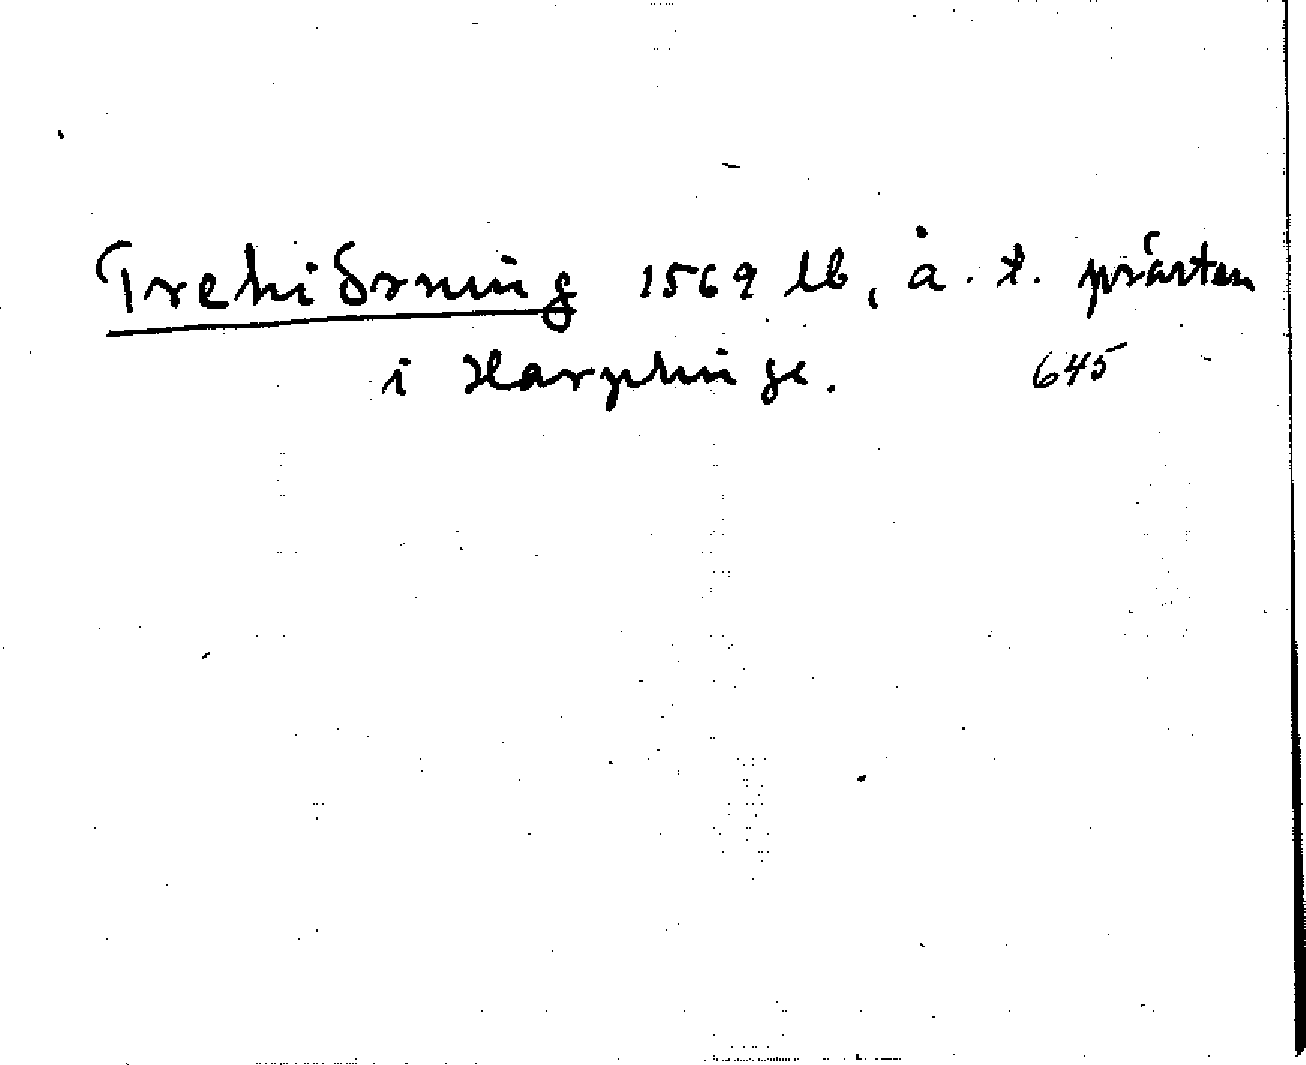 Trehiörning 1569 lb, å. t. prästen
i Harplinge. 645